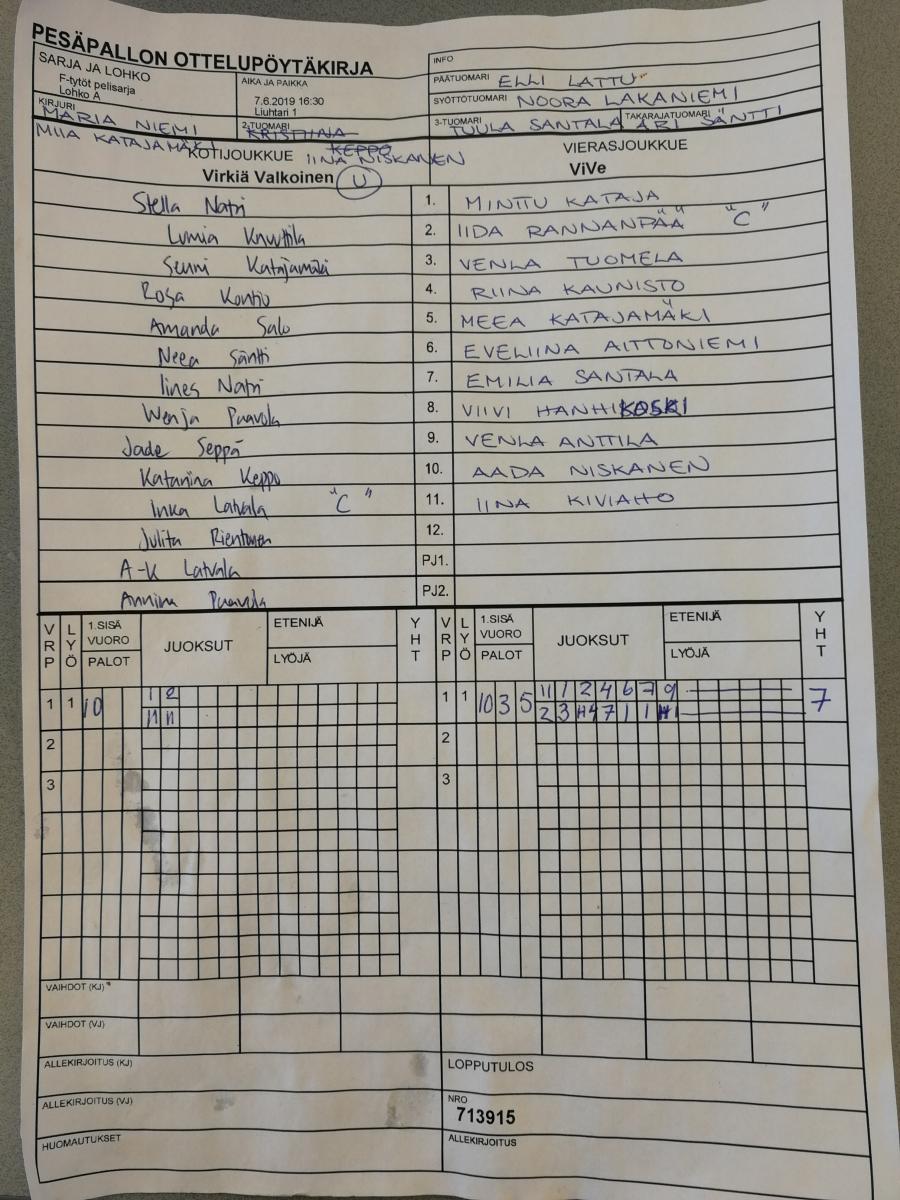 PESÄPALLON OTTELUPÖYTÄKIRJA
SARJA JA LOHKO
F-tytöt pelisarja
Lohko A
AIKA JA PAIKKA
7.6.2019 16:30
Liuhtari 1
INFO
PÄÄTUOMARI ELLI LATTU
SYÖTTÖTUOMARI NOORA LAKANIEMI
KIRJURI
MARIA NIEMI
MIIA KATAJAMÄKI
2-TUOMARI
KRISTIINA
KEPPO
IINA NISKANEN
3-TUOMARI
TUULA SANTALA
TAKARAJATUOMARI
ARI SÄNTTI
KOTIJOUKKUE
Virkiä Valkoinen U
VIERASJOUKKUE
ViVe
Stella Natri 1. MINTTU KATAJA
Lumia Knuuttila 2. IIDA RANNANPÄÄ "C"
Senni Katajamäki 3. VENLA TUOMELA
Rosa Kontio 4. RIINA KAUNISTO
Amanda Salo 5. MEEA KATAJAMÄKI
Neea Säntti 6. EVELIINA AITTONIEMI
Iines Natri 7. EMILIA SANTALA
Wenja Paavola 8. VIIVI HANHIKOSKI
Jade Seppä 9. VENLA ANTTILA
Katariina Keppo 10. AADA NISKANEN
Inka Latvala "C" 11. IINA KIVIAHO
Julita 12.
A-K Latvala PJ1.
Annina Paavola PJ2.
VRP LYÖ 1.SISÄ VUORO PALOT JUOKSUT ETENIJÄ LYÖJÄ YHT VRP LYÖ 1.SISÄ VUORO PALOT JUOKSUT ETENIJÄ LYÖJÄ YHT
1 1 10 1 2 1 1 10 3 5 11 1 2 4 6 7 9 7
11 11 2 3 H4 7 1 1 H1
2 2
3 3
VAIHDOT (KJ)
VAIHDOT (VJ)
ALLEKIRJOITUS (KJ) LOPPUTULOS
ALLEKIRJOITUS (VJ) NRO
713915
HUOMAUTUKSET ALLEKIRJOITUS